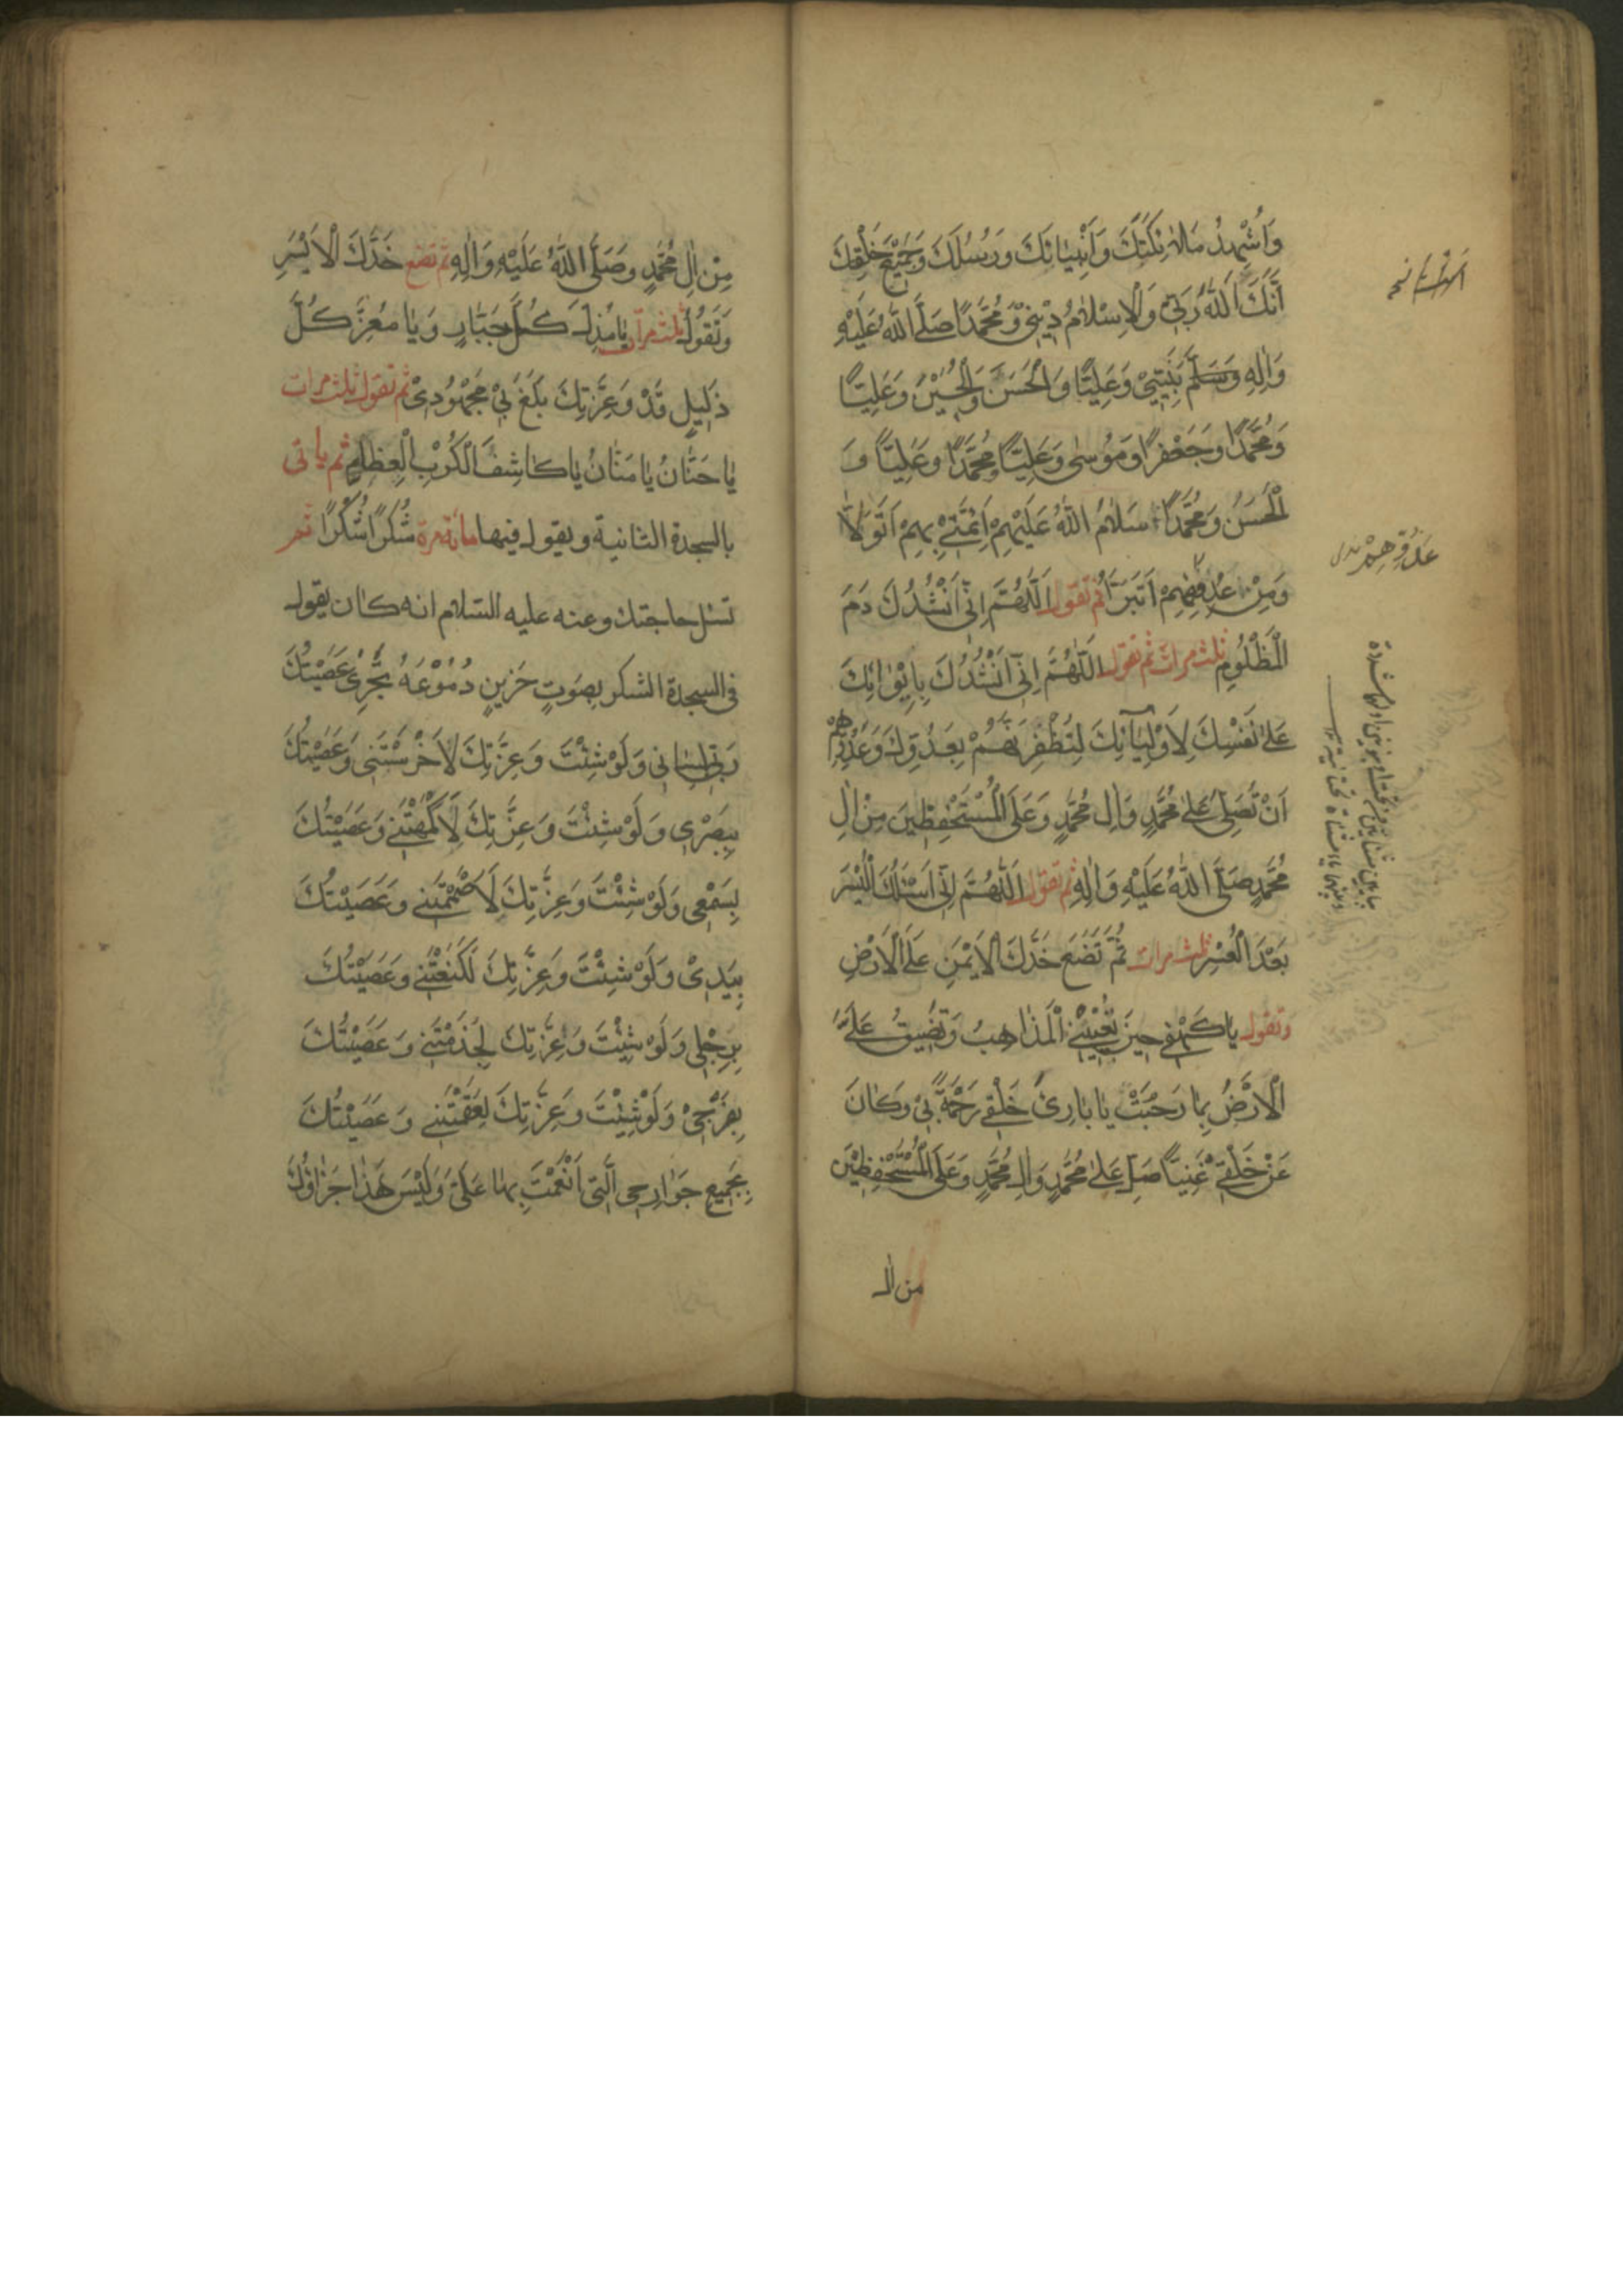 وَاُشْهِدُ مَلٰئِكَتَكَ وَاَنْبِيَائَكَ وَرُسُلَكَ وَجَمِيْعَ خَلْقِكَ
اَنَّكَ اَللّٰهُ رَبِّىْ وَالْاِسْلَامُ دِيْنِىْ وَمُحَمَّدًا صَلَّى اللّٰهُ عَلَيْهِ
وَاٰلِهِ وَسَلَّمَ نَبِيِّىْ وَعَلِيًّا وَالْحَسَنَ وَالْحُسَيْنَ وَعَلِيًّا
وَمُحَمَّدًا وَجَعْفَرًا وَمُوْسٰى وَعَلِيًّا وَمُحَمَّدًا وَعَلِيًّا وَ
الْحَسَنُ وَمُحَمَّدًا سَلَامُ اللّٰهُ عَلَيْهِمْ اَئِمَّتِىْ بِهِمْ اَتَوَلَّا
وَمِنْ عَدُوِّهِمْ اَتَبَرَّأُ ثم تقول اَللّٰهُمَّ اِنِّىْ اَنْشُدُكَ دَمَ
الْمَظْلُومِ ثلث مرات ثم تقول اللّٰهُمَّ اِنِّىْ اَنْشُدُكَ بِاِيْوَائِكَ
عَلٰى نَفْسِكَ لِاَوْلِيَآئِكَ لِتُظْفِرَنَّهُمْ بِعَدُوِّكَ وَعَدُوِّهِمْ
اَنْ تُصَلِّىَ عَلٰى مُحَمَّدٍ وَاٰلِ مُحَمَّدٍ وَعَلَى الْمُسْتَحْفِظِينَ مِنْ اٰلِ
مُحَمَّدٍ صَلَّى اللّٰهُ عَلَيْهِ وَاٰلِهِ ثم تقول اَللّٰهُمَّ اِنِّى اَسْئَلُكَ الْيُسْرَ
بَعْدَ الْعُسْرِ ثلث مرات ثُمَّ تَضَعُ خَدَّكَ الْاَيْمَنِ عَلَى الْاَرْضِ
وتقول يَا كَهْفِى حِينَ تُعْيِيْنِى الْمَذَاهِبُ وَتَضِيقُ عَلَىَّ
الْاَرْضُ بِمَا رَحُبَتْ يَا بَارِئَ خَلْقِى رَحْمَةً بِىْ وَكَانَ
عَنْ خَلْقِىْ غَنِيًّا صَلِّ عَلٰى مُحَمَّدٍ وَاٰلِ مُحَمَّدٍ وَعَلَى الْمُسْتَحْفِظِيْنَ
من اٰل
عَدُوِّهِمْ
مِنْ اٰلِ مُحَمَّدٍ وَصَلَّى اللّٰهُ عَلَيْهِ وَاٰلِهِ ثم تضع خَدَّكَ الْاَيْسَرِ
وَتَقُولُ ثلث مرات يَا مُذِلَّ كُلِّ جَبَّارٍ وَيَا مُعِزَّ كُلِّ
ذَلِيلٍ قَدْ وَعِزَّتِكَ بَلَغَ بِىْ مَجْهُوْدِىْ ثم تقول ثلث مرات
يَا حَنَّانُ يَا مَنَّانُ يَا كَاشِفَ الْكُرَبِ الْعِظَامِ ثم ياتى
بالسجدة الثانية ويقول فيها مائة مرة شُكْرًا شُكْرًا ثم
تسئل حاجتك وعنه عليه السلام انه كان يقول
فى السجدة الشكر بِصَوتٍ حَزِينٍ دُمُوْعَهُ تَجْرِىْ عَصَيْتُكَ
رَبِّ بِلِسَانِى وَلَوْ شِئْتَ وَعِزَّتِكَ لَاَخْرَسْتَنِى وَعَصَيْتُكَ
بِبَصَرِى وَلَوْ شِئْتَ وَعِزَّتِكَ لَاَكْمَهْتَنِى وَعَصَيْتُكَ
بِسَمْعِى وَلَوْ شِئْتَ وَعِزَّتِكَ لَاَصْمَمْتَنِى وَعَصَيْتُكَ
بِيَدِىْ وَلَوْ شِئْتَ وَعِزَّتِكَ لَكَنَعْتَنِى وَعَصَيْتُكَ
بِرِجْلِى وَلَوْ شِئْتَ وَعِزَّتِكَ لَجَذَمْتَنِى وَعَصَيْتُكَ
بِفَرْجِىْ وَلَوْ شِئْتَ وَعِزَّتِكَ لَعَقَمْتَنِى وَعَصَيْتُكَ
بِجَمِيعِ جَوَارِحِى الَّتِى اَنْعَمْتَ بِهَا عَلَىَّ وَلَيْسَ هٰذَا جَزَاؤُكَ